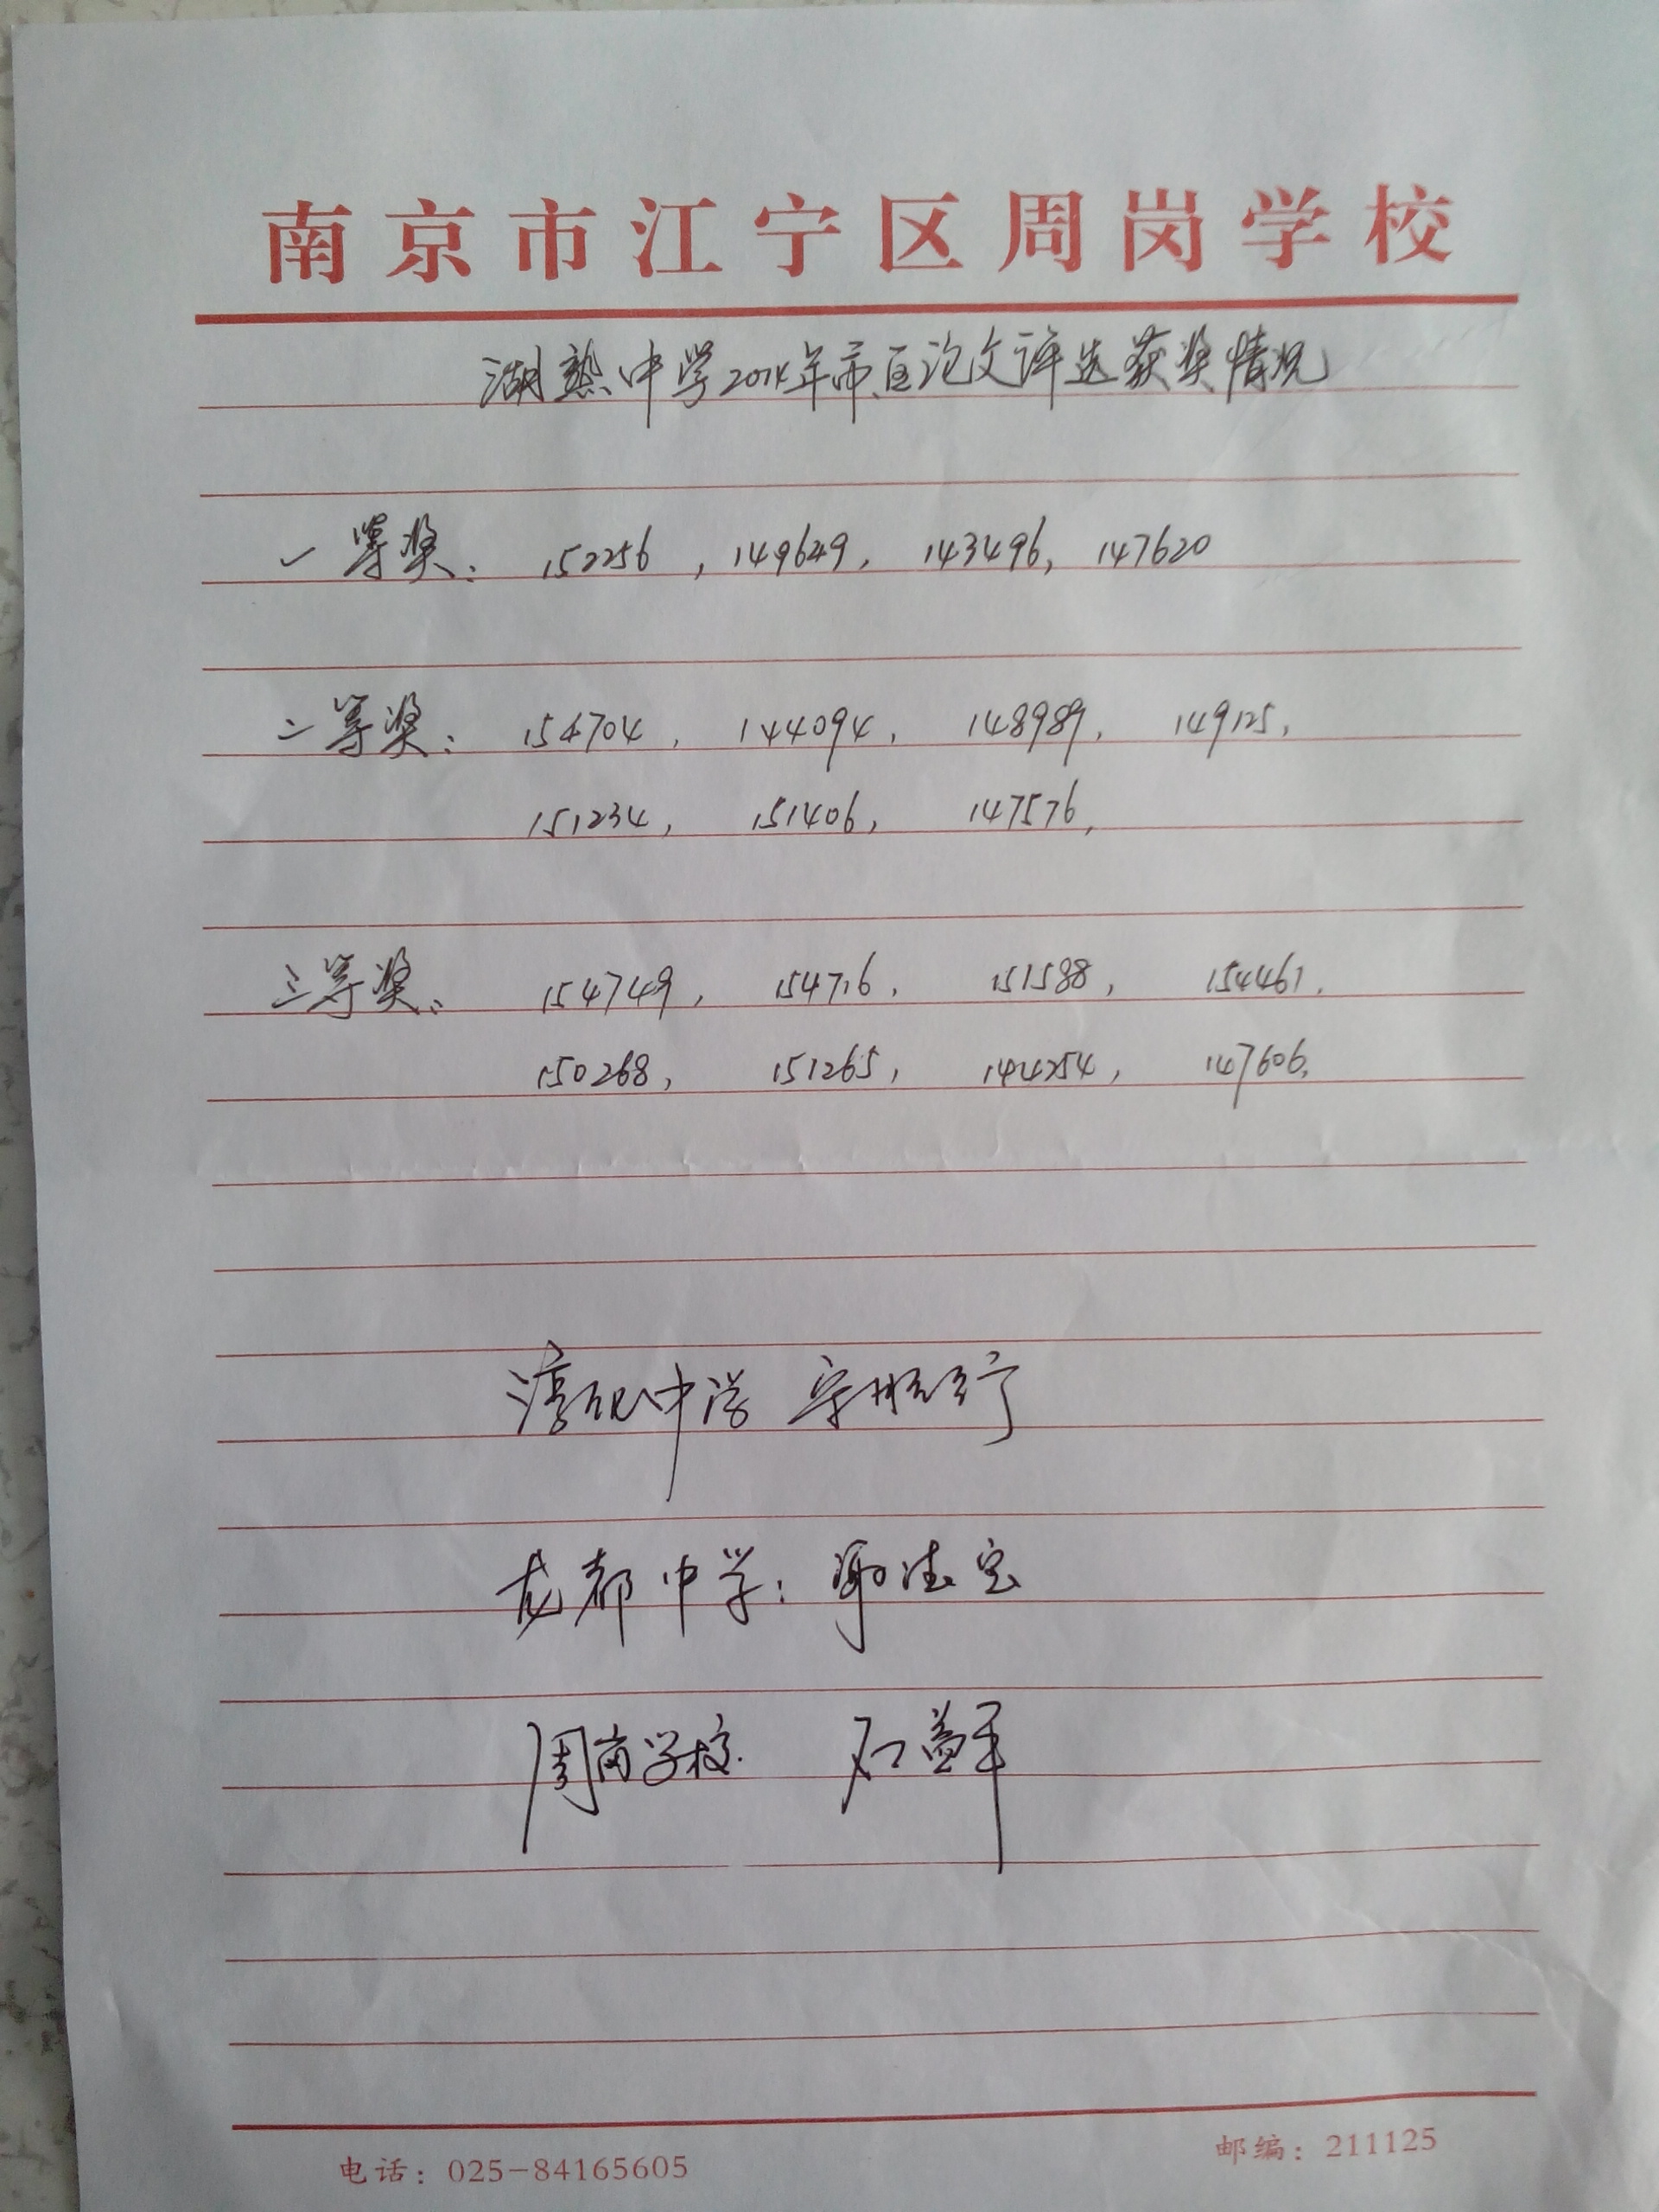 南京市江宁区周岗学校
湖熟中学2014年市区论文评选获奖情况
一等奖: 152256, 149649, 143496, 147620
二等奖: 154704, 144094, 148989, 149125,
151234, 151406, 147576,
三等奖: 154749, 154716, 151588, 154461,
150268, 151265, 144254, 147606,
淳化中学
龙都中学: 谢德宝
周岗学校 石益军
电话: 025-84165605
邮编: 211125